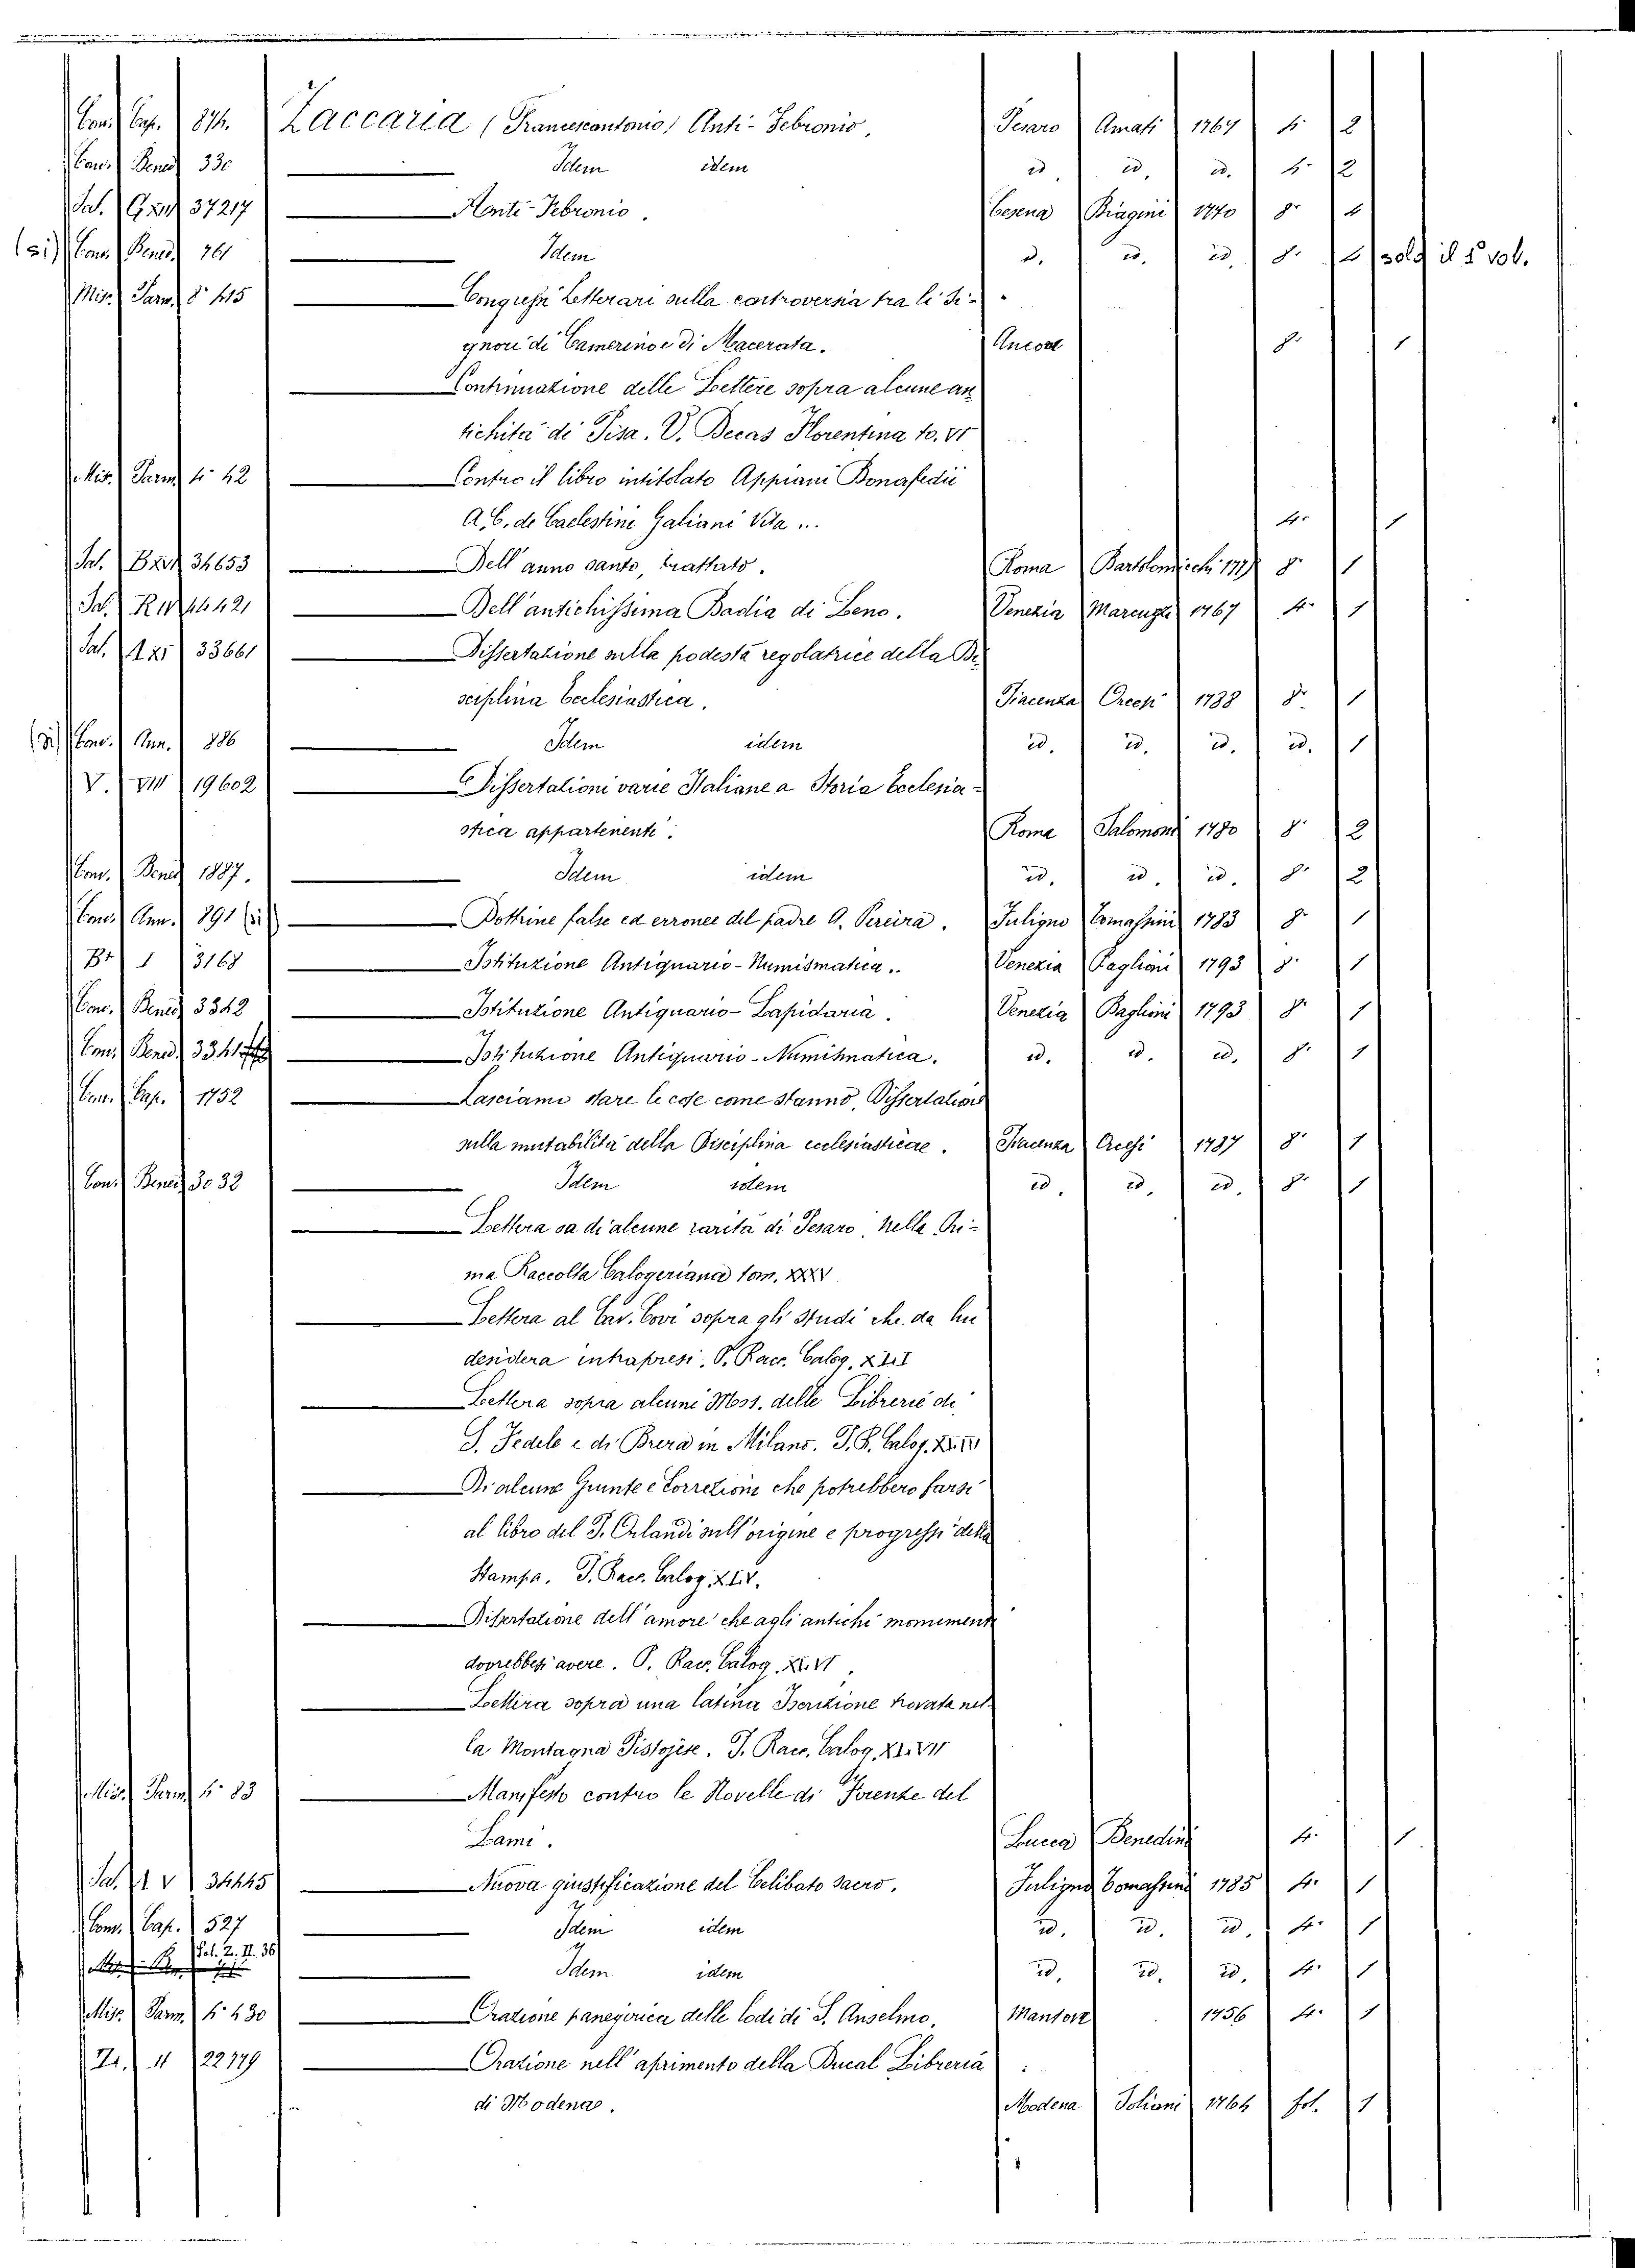 Con. Cap. 874. Zaccaria (Francescantonio) Anti-Febronio, Pesaro Amati 1767 4° 2
Con. Bened. 330 Idem idem id. id. id. 4° 2
Sal. 37217 Anti-Febronio. Cesena Biagini 1770 8° 4
(si) Con. Bened. 761 Idem id. id. id. 8° 4 solo il 1° vol.
Mis. Parm. 8° 415 Congressi Letterari sulla controversia tra li Si-
gnori di Camerino e di Macerata. Ancona 8° 1
Continuazione delle Lettere sopra alcune an
tichità di Pisa. V. Decas Florentina to. VI
Mis. Parm. 4° 42 Contro il libro intitolato Appiani Bonafedii
A. C. de Caelestini Galiani Vita ... 4° 1
Sal. 34653 Dell'anno santo, trattato. Roma 8° 1
Sal. R IV 44421 Dell'antichissima Badia di Leno. Venezia 1767 4° 1
Sal. 33661 Dissertazione sulla podestà regolatrice della Di
sciplina Ecclesiastica. Piacenza Orcesi 1788 8° 1
(si) Con. Ann. 886 Idem idem id. id. id. id. 1
V. VIII 19602 Dissertationi varie Italiane a Storia Ecclesia-
stica appartenenti. Roma Salomoni 1780 8° 2
Con. Bened. 1887. Idem idem id. id. id. 8° 2
Con. Ann. 891 (si) Dottrine false ed erronee del padre A. Pereira. Fuligno Tomassini 1783 8° 1
1 3168 Istituzione Antiquario-Numismatica. Venezia Baglioni 1793 8° 1
Con. Bened. 3342 Istituzione Antiquario-Lapidaria. Venezia Baglioni 1793 8° 1
Con. Bened. 3341 Istituzione Antiquario-Numismatica. id. id. id. 8° 1
Con. Cap. 1752 Lasciamo stare le cose come stanno, Dissertazione
sulla mutabilità della Disciplina ecclesiastica. Piacenza Orcesi 1787 8° 1
Con. Bened. 3032 Idem idem id. id. id. 8° 1
Lettera sa di alcune rarità di Pesaro, nella Pri-
ma Raccolta Calogeriana tom.
Lettera al Cav. Covi sopra gli studi che da lui
desidera intrapresi. V. Racc. Calog. XLI
Lettera sopra alcuni Mss. delle Librerie di
S. Fedele e di Brera in Milano. V. R. Calog.
Di alcune Giunte e Correzioni che potrebbero farsi
al libro del P. Orlandi sull'origine e progressi della
Stampa. V. Racc. Calog. XLIV.
Dissertatione dell'amore che agli antichi monumenti
dovrebbesi avere. V. Racc. Calog.
Lettera sopra una latina Iscrizione trovata nel-
la Montagna Pistojese. V. Racc. Calog.
Misc. Parm. 4° 83 Manifesto contro le Novelle di Firenze del
Lami. Lucca Benedini 4° 1
Sal. 1 V 34445 Nuova giustificazione del Celibato sacro. Fuligno Tomassini 1785 4° 1
Con. Cap. 527 Idem idem id. id. id. 4° 1
Sal. Z. II. 36 Idem idem id. id. id. 4° 1
Misc. Parm. 4° 430 Oratione panegirica delle lodi di S. Anselmo. Mantova 1756 4° 1
11 22179 Oratione nell'aprimento della Ducal Libreria
di Modena. Modena Soliani 1764 fol. 1